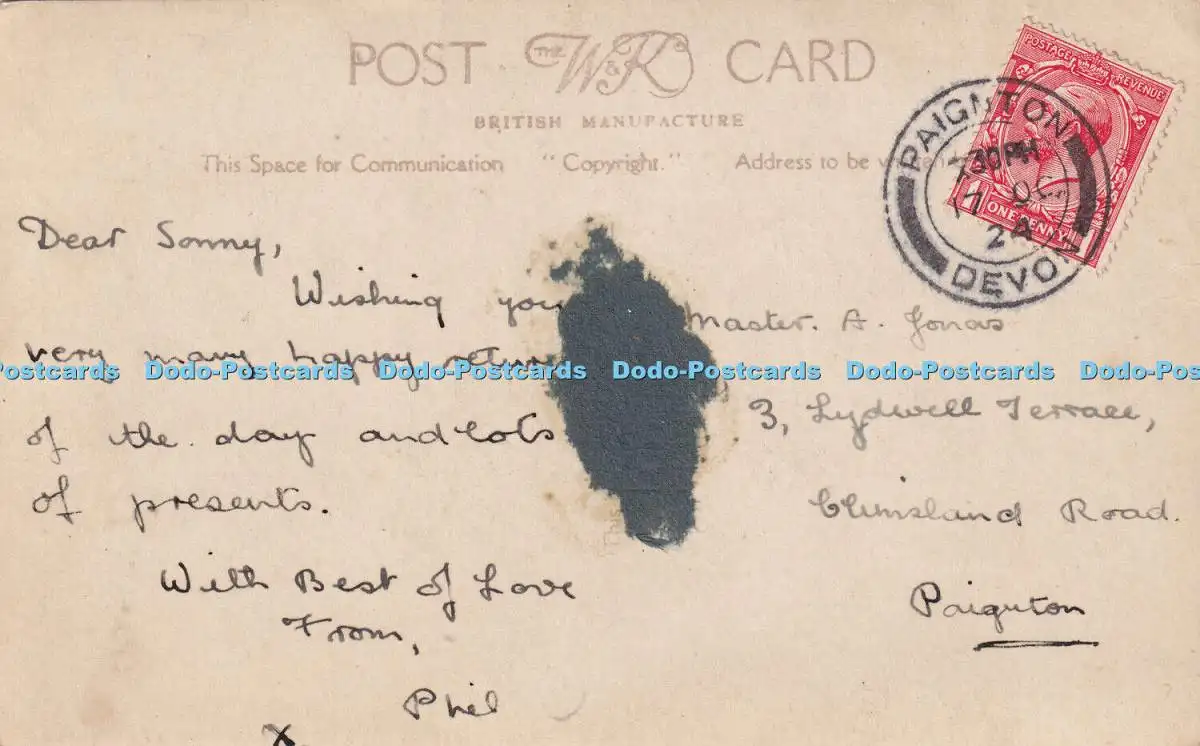 POST THE W&K CARD
BRITISH MANUFACTURE
This Space for Communication "Copyright." Address to be
POSTAGE REVENUE
ONE PENNY
PAIGNTON
7.30 PM
17 OC
24
DEVON
Dear Sonny,
Wishing you
very many happy return
of the day and lots
of presents.
With Best of Love
From,
Phil
X
Master. A. Jonas
3, Lydwell Terrace,
Climsland Road.
Paignton
Dodo-Postcards Dodo-Postcards Dodo-Postcards Dodo-Postcards